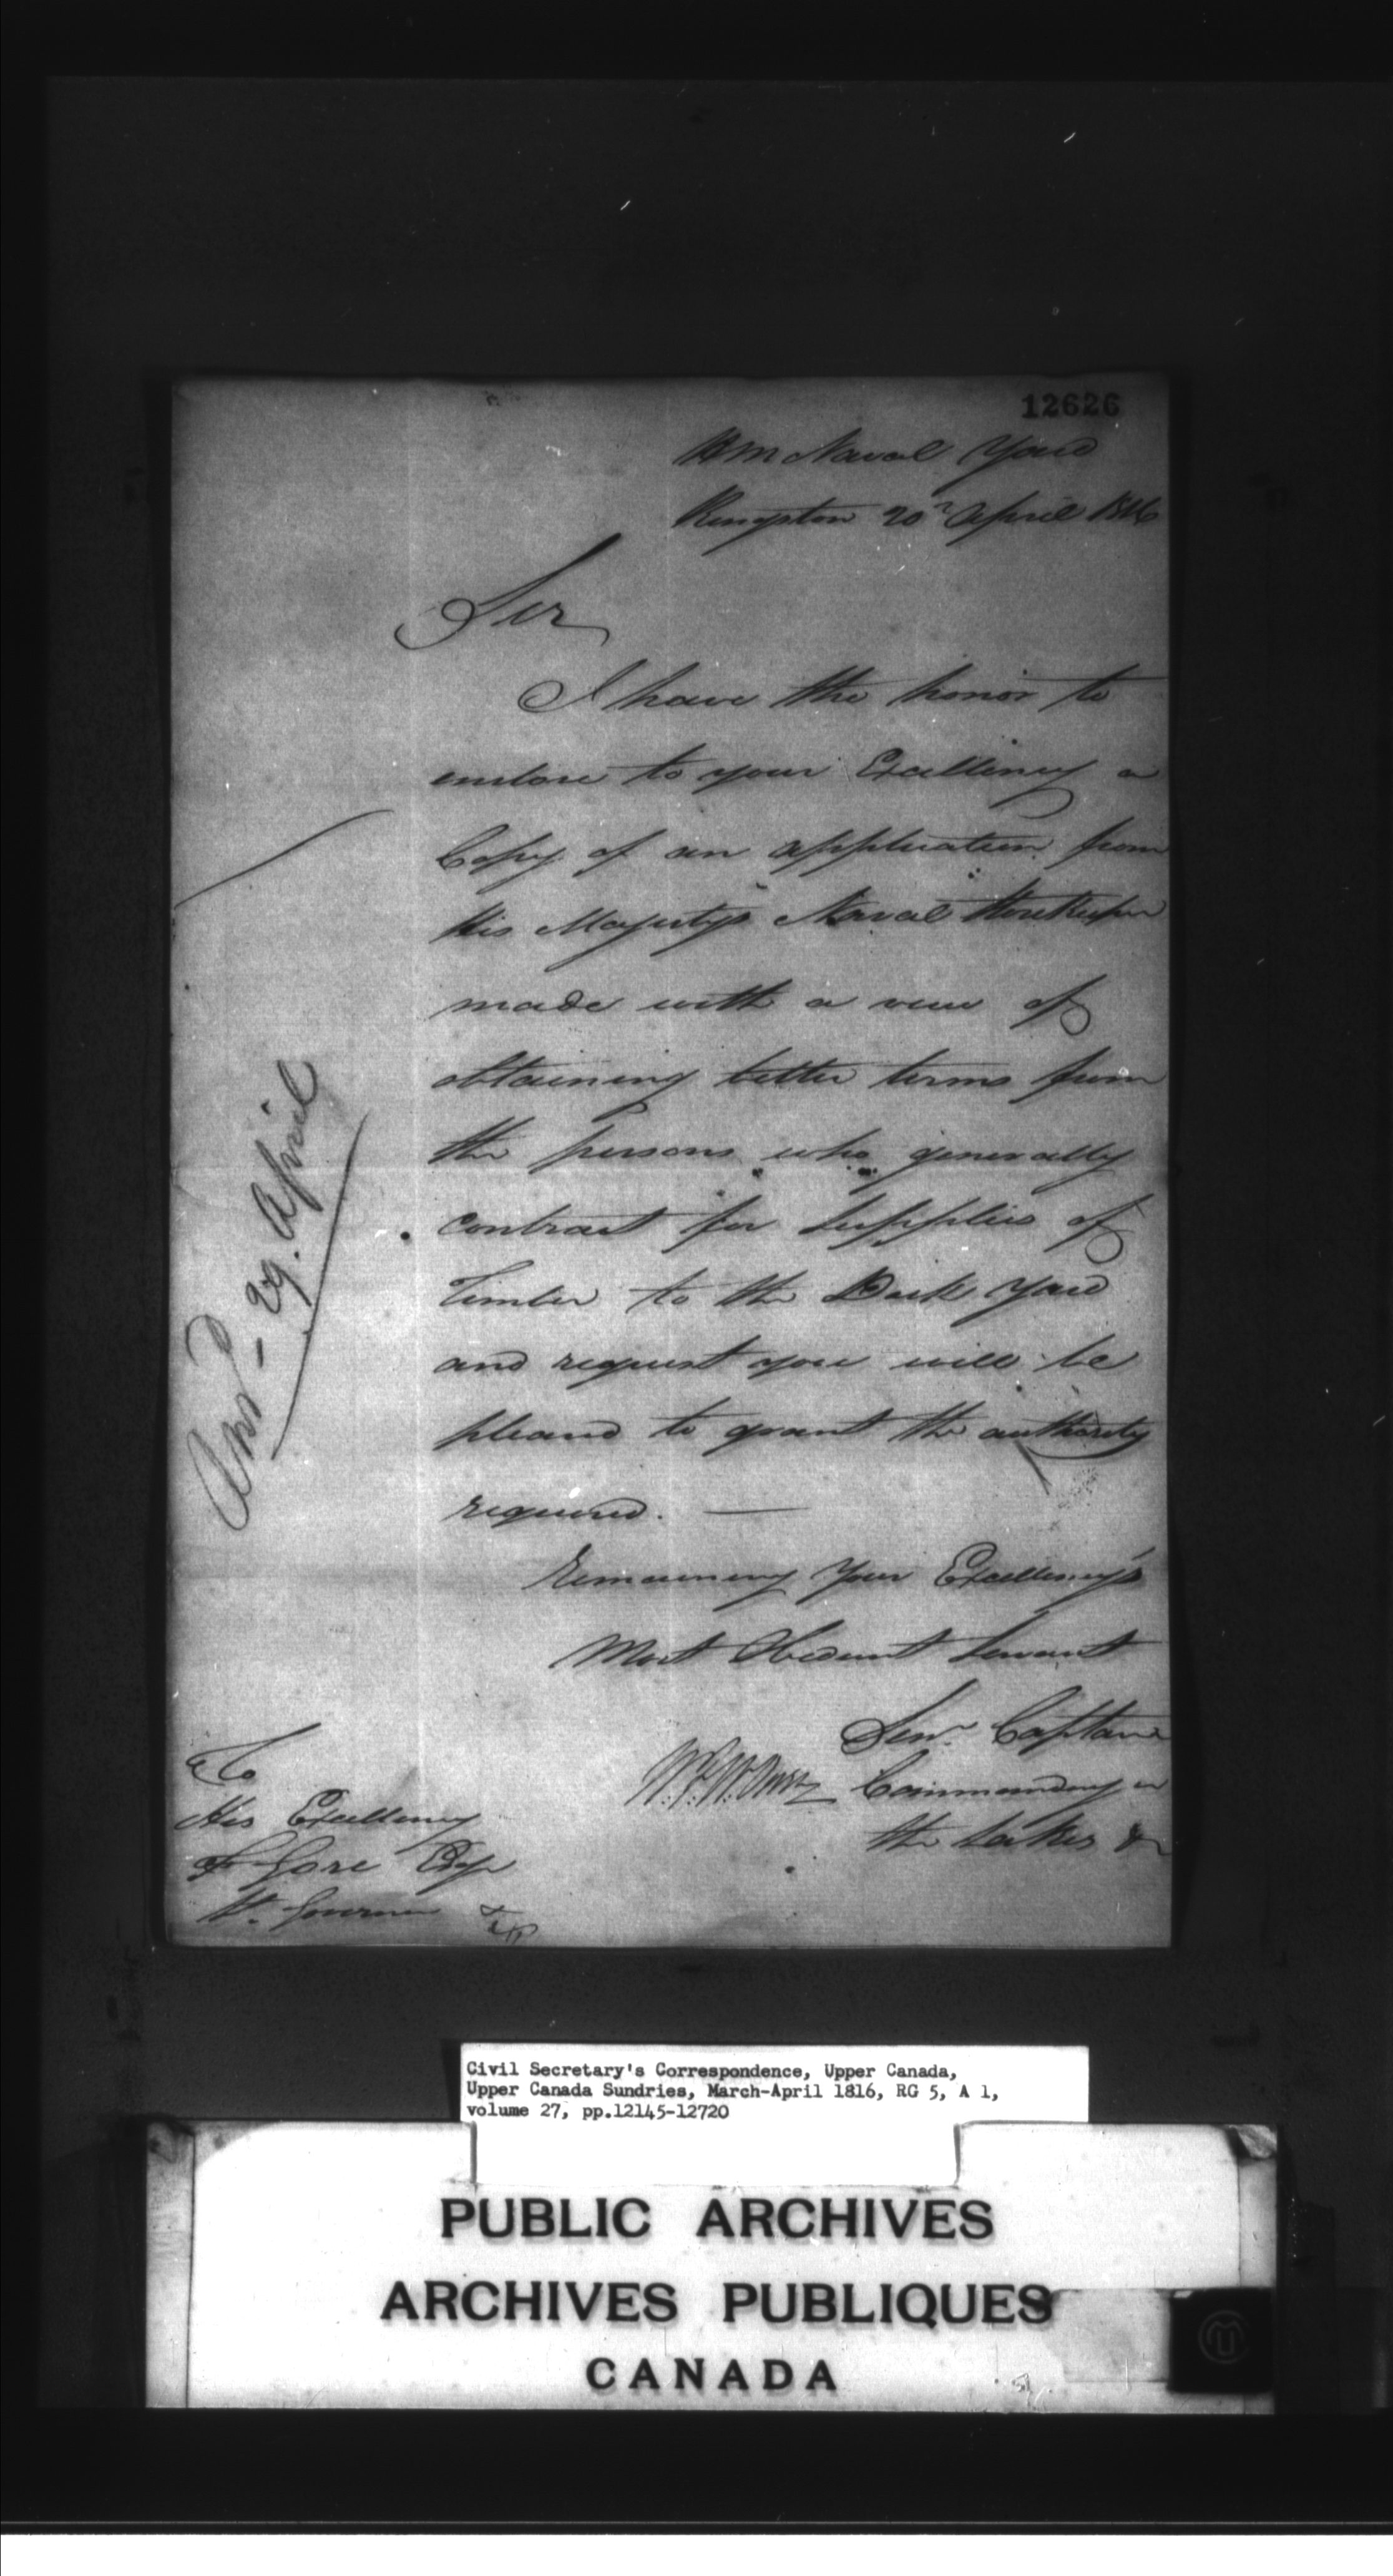 12626
HM Naval Yard
Kingston 20th April 1816
Sir
I have the honor to
enclose to your Excellency a
Copy of an application from
His Majestys Naval Storekeeper
made with a view of
obtaining better terms from
the persons who generally
contract for Supplies of
Timber to the Dock Yard
and request you will be
pleased to grant the authority
required. —
Remaining Your Excellency's
Most Obedient Servant
Senr. Captain
W.F.W. Owen Commanding on
the Lakes &c
To
His Excellency
F Gore Esqr
Lt. Governor &c
Ansd - 29. April
Civil Secretary's Correspondence, Upper Canada,
Upper Canada Sundries, March-April 1816, RG 5, A 1,
volume 27, pp.12145-12720
PUBLIC ARCHIVES
ARCHIVES PUBLIQUES
CANADA